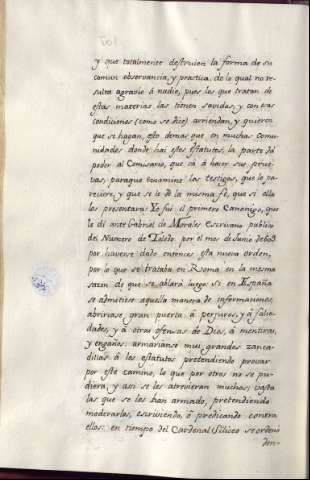 y que totalmente destruien la forma de su
comun observancia, y practica, de lo qual no re-
sulta agravio â nadie, pues los que tratan de
estas materias las tienen savidas, y con esas
condiciones (como se dice) arriendan, y quieren
que se hagan, esto demas que en muchas comu-
nidades donde hai estos Estatutos, la parte dâ
poder al Comisario, que vâ â hacer sus prue-
bas, paraque examine los testigos, que le pa-
reciere, y que se le dê la misma fê, que si ella
los presentara: Yo fui el primero Canonigo, que
le di ante Gabriel de Morales Escrivano publico
del Numero de Toledo por el mes de Junio de
por haverse dado entonces esta nueva orden,
por lo que se trataba en Roma en la misma
sazon de que se ablarâ luego: Si en España
se admitiese aquella manera de informaciones,
abririase gran puerta â perjuros, y â false-
dades, y â otras ofensas de Dios, â mentiras,
y engaños: armarianse mui grandes zanca-
dillas â los estatutos pretendiendo provar
por este camino, lo que por otros no se pu-
diera, y asi se les atrevieran muchos; vasta
las que se les han armado, pretendiendo
moderarlos, escriviendo, ô predicando contra
ellos: en tiempo del Cardenal Siliceo se ordeno
don-